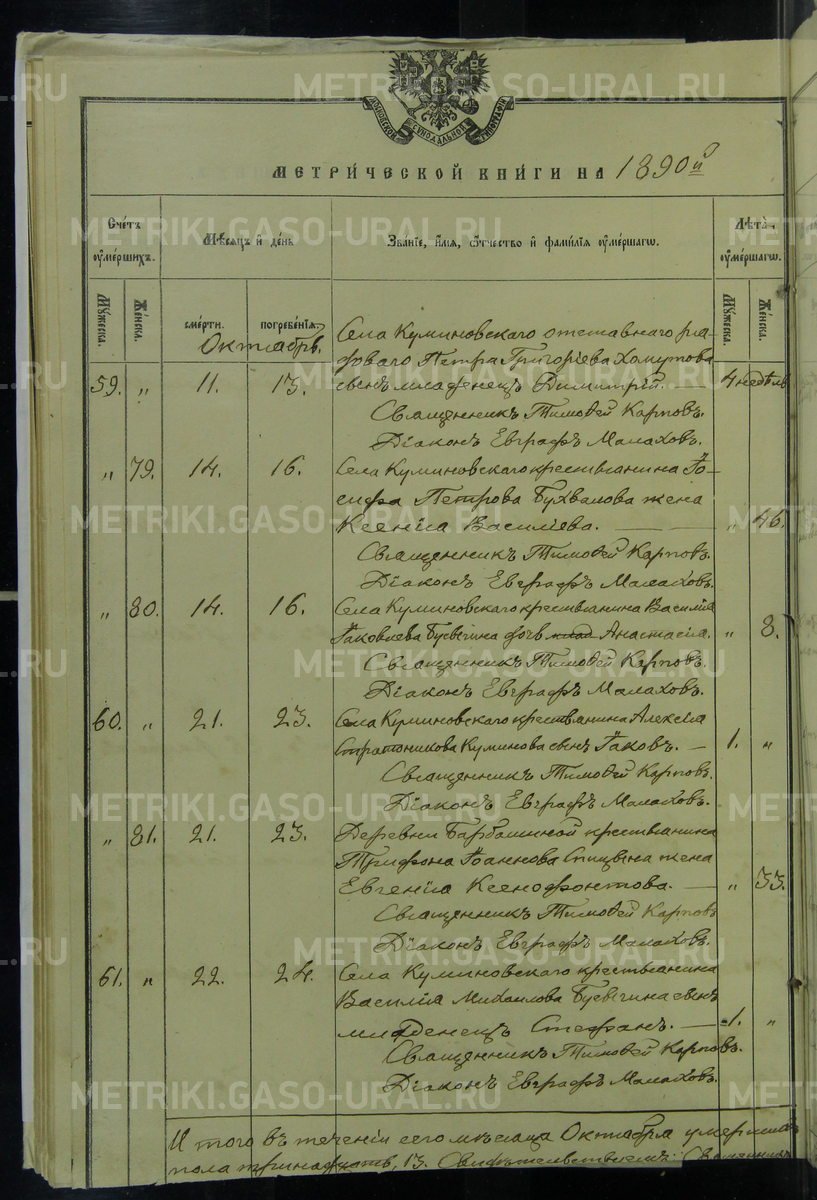 МОСКОВСКОЙ СѴНОДАЛЬНОЙ ТИПОГРАФІИ
МЕТРИ́ЧЕСКОЙ КНИ́ГИ НА 1890й
Сче́тъ оу҆ме́ршихъ.
Мѣ́сѧцъ и҆ де́нь
Зва́нїе, и҆́мѧ, ѻ҆́тчество и҆ фами́лїѧ оу҆ме́ршагѡ.
Лѣ́та̀ оу҆ме́ршагѡ.
Мꙋ́жеска.
Же́нска.
сме́рти.
погребе́нїѧ.
Мꙋ́жеска.
Же́нска.
Октябрь.
Села Куминовскаго отставнаго ря-
доваго Петра Григоріева Хомутова
59. " 11. 13. сынъ младенецъ Димитрій. 4 недѣль
Священникъ Тимоѳей Карповъ.
Діаконъ Евграфъ Малаховъ.
" 79. 14. 16. Села Куминовскаго крестьянина Іо-
сифа Петрова Бухвалова жена
Ксенія Василіева. — " 46.
Священникъ Тимоѳей Карповъ.
Діаконъ Евграфъ Малаховъ.
" 80. 14. 16. Села Куминовскаго крестьянина Василія
Іаковлева дочь Анастасія. " 8.
Священникъ Тимоѳей Карповъ.
Діаконъ Евграфъ Малаховъ.
60. " 21. 23. Села Куминовскаго крестьянина Алексія
Стратоникова Куминова сынъ Іаковъ. — 1. "
Священникъ Тимоѳей Карповъ.
Діаконъ Евграфъ Малаховъ.
" 81. 21. 23. Деревни Барбашиной крестьянина
Трифона Іоаннова Спицына жена
Евгенія Ксенофонтова. — " 33.
Священникъ Тимоѳей Карповъ
Діаконъ Евграфъ Малаховъ.
61. " 22. 24. Села Куминовскаго крестьянина
Василія Михаилова сынъ
младенецъ Стефанъ. — 1. "
Священникъ Тимоѳей Карповъ.
Діаконъ Евграфъ Малаховъ.
И того въ теченіи сего мѣсяца Октября умерло
пола тринадцать, 13. Свидѣтельствуемъ: Священникъ
METRIKI.GASO-URAL.RU